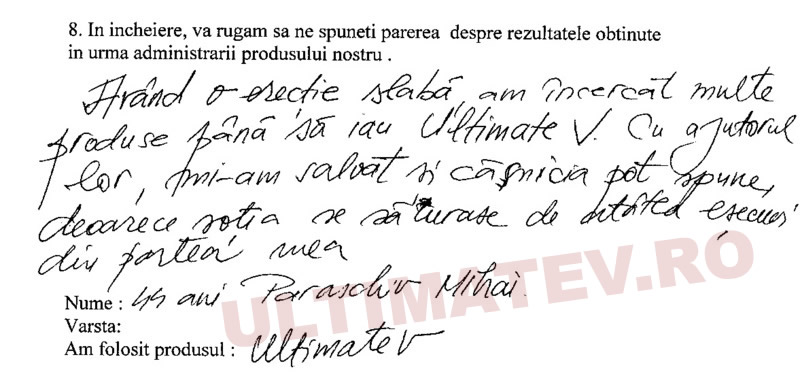 8. In incheiere, va rugam sa ne spuneti parerea despre rezultatele obtinute
in urma administrarii produsului nostru .
Având o erecție slabă, am încercat multe
produse până să iau Ultimate V. Cu ajutorul
lor, mi-am salvat si căsnicia pot spune,
deoarece sotia se săturase de atâtea esecuri
din partea mea
Nume : 44 ani Paraschiv Mihai
Varsta:
Am folosit produsul : Ultimate V
ULTIMATEV.RO